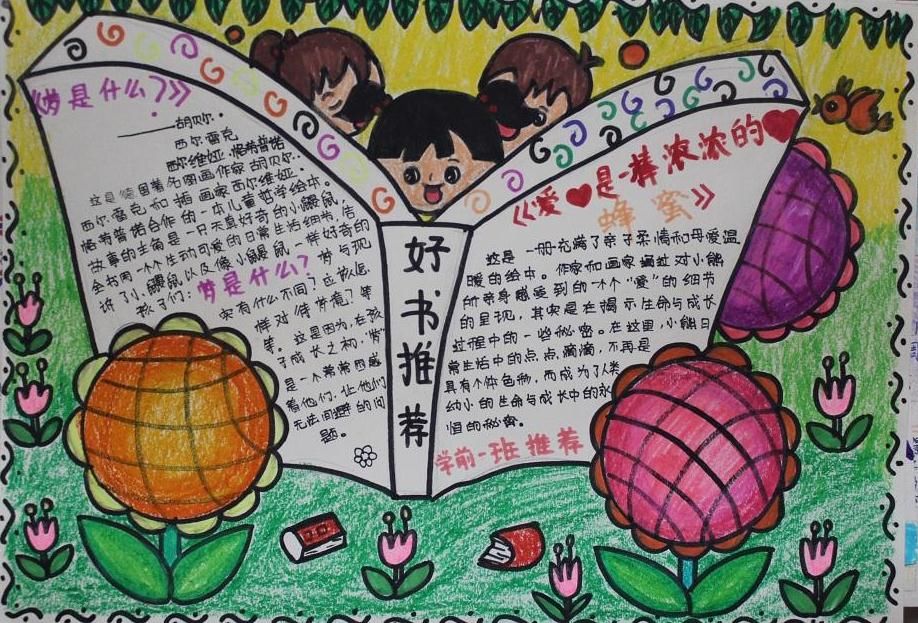 《梦是什么?》
——胡贝尔·
西尔·雷克
西尔维娅·格希普诺
这是德国著名图画作家胡贝尔·
西尔·雷克和插画家西尔维娅·
格希普诺合作的一本儿童哲学绘本。
故事的主角是一只天真好奇的小鼹鼠,
全书用一个个生动可爱的日常生活细节,告
诉了小鼹鼠以及像小鼹鼠一样好奇的
孩子们:梦是什么?梦与现
实有什么不同?应该怎
样对待梦境?等
等。这是因为,在孩
子成长之初,“梦”
是一个常常困惑
着他们,让他们
无法回避的问
题。
好书推荐
《爱是一棒浓浓的
蜂蜜》
这是一册充满了亲子柔情和母爱温
暖的绘本。作家和画家通过对小熊
的亲身感受到的一个个“爱”的细节
的呈现,其实是在揭示生命与成长
过程中的一些秘密。在这里,小熊日
常生活中的点点滴滴,不再是
具有个体色物,而成为了人类
幼小的生命与成长中的永
恒的秘密。
学前一班推荐